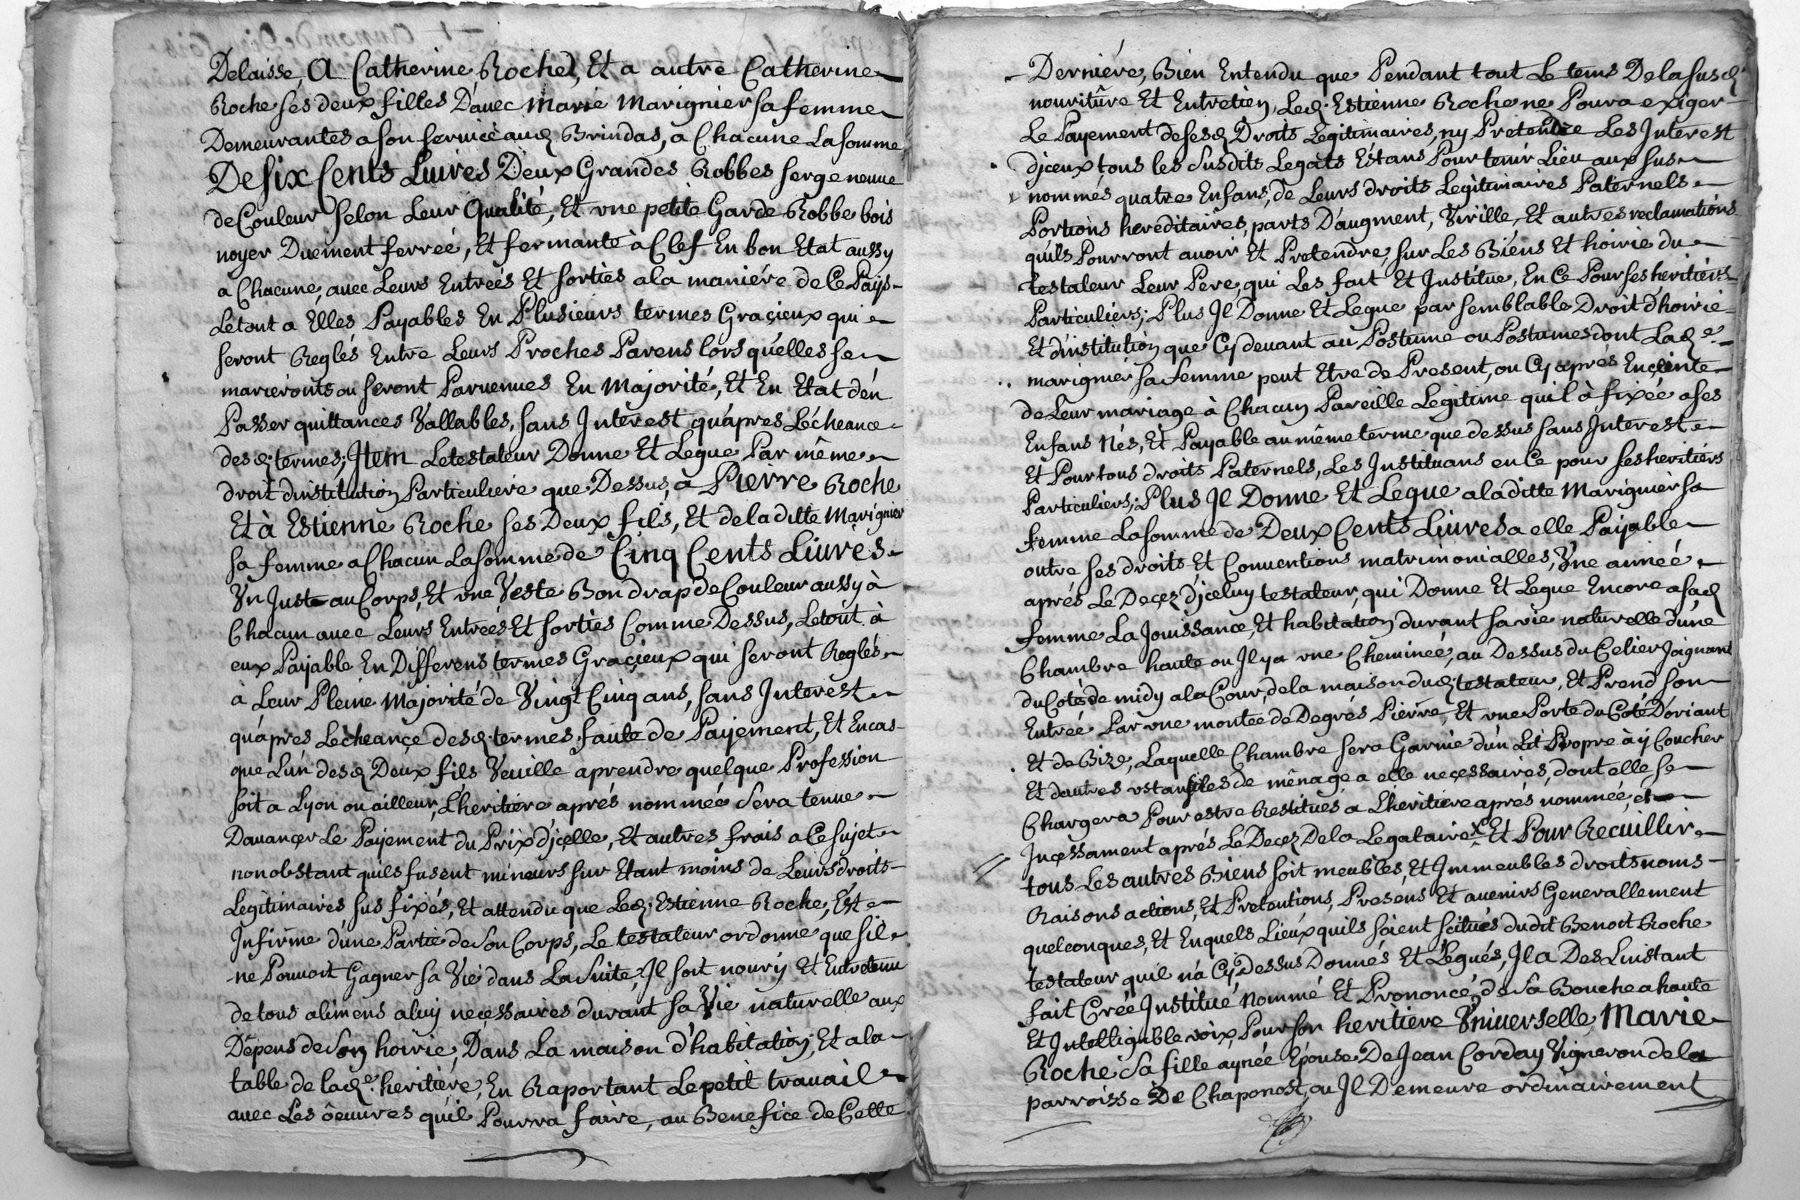 Delaisse, A Catherine Roche, Et a autre Catherine
Roche sés deux filles D'auec Marie Marignier sa femme
Demeurantes a son seruice aud Brindas, a Chacune La somme
De six Cents Liures Deux Grandes Robbes serge neuue
de Couleur selon Leur Qualité, Et vne petite Garde Robbe bois
noyer Duement ferreé, Et fermante à Clef En bon Etat aussy
a Chacune, auec Leurs Entreés Et sorties a la maniére de Ce Pays
Le tout a Elles Payables En Plusieurs termes Graçieux qui
seront Reglés Entre Leurs Proches Parens lors qu'elles se
marieronts ou seront Paruenues En Majorité, Et En Etat d'en
Passer quittances Vallables, sans Interest qu'apres L'écheance
desd. termes; Item Le testateur Donne Et Legue Par même
droit d'institution Particuliere que Dessus, à Pierre Roche
Et à Estienne Roche ses Deux fils, Et de la ditte Marignier
sa femme a Chacun La somme de Cinq Cents Liures
Vn Juste au Corps, Et vne Veste Bon drap de Couleur aussy à
Chacun auec Leurs Entreés Et sorties Comme Dessus, Le tout à
eux Païable En Differens termes Graçieux qui seront Reglés
à Leur Pleine Majorité de Vingt Cinq ans, sans Interest
qu'àpres L'écheançe desd. termes faute de Paijement, Et En cas
que L'un desd Deux fils Veuille aprendre quelque Profession
soit a Lyon ou ailleur, L'heritiere aprés nommée Sera tenue
D'auançer Le Paijement du Prix d'jcelle, Et autres frais a Ce sujet
nonobstant qu'ils fusent mineurs sur Etant moins de Leurs droits
Légitimaires sus fixés, Et attendu que Led. Estienne Roche, Est
Infirme d'une Partie de son Corps, Le testateur ordonne que s'il
ne Pouuoit Gagner sa Vie dans La Suite, Il soit noury Et Entretenu
de tous alimens a luy neçessaires durant sa Vie naturelle aux
Dépens de Son hoirie, Dans La maison d'habitation, Et a la
table de lade. heritiére, En Raportant Le petit trauail
auec Les oeuures qu'il Pourra faire, au Benefice de Cette
Derniére, Bien Entendu que Pendant tout Le tems De la susd
nouriture Et Entretien, Led. Estienne Roche ne Poura exiger
Le Payement de sesd Droits Légitimaires, ny Pretendre Les Interest
d'jceux, tous les susdits Legats Étans Pour tenir Lieu aux sus
nommés quatre Enfans, de Leurs droits Legitimaires Paternels
Portions hereditaires, parts D'augment, Virille, Et autres reclamations
qu'ils Pourront auoir Et Pretendre, sur Les Biéns Et hoirie du
testateur Leur Pere, qui Les fait Et Institue, En Ce Pour ses heritiérs
Particuliérs; Plus Il Donne Et Legue par semblable Droit d'hoirie
Et d'institution que Cy deuant au Postume ou Postumes dont Lade.
marignier sa femme peut Etre de Present, ou Cy apres Enceinte
de Leur mariage à Chacun Pareille Legitime qu'il à fixée a ses
Enfans Nés, Et Payable au même terme que dessus sans Interest
Et Pour tous droits Paternels, Les Instituans en Ce pour ses heritiérs
Particuliers; Plus Il Donne Et Legue a la ditte Marignier sa
femme La somme de Deux Cents Liures a elle Païable
outre ses droits Et Conuentions matrimonialles, Vne année
aprés Le Deçez d'jceluy testateur, qui Donne Et Legue Encore a sad
femme La Jouissance, Et habitation durant sa vie naturelle d'une
Chambre haute ou Il y a vne Cheminée, au Dessus du Celier Joignant
du Coté de midy a la Cour, de la maison dud testateur, Et Prend son
Entrée Par vne montée de Degrés Pierre, Et vne Porte du Coté D'oriant
Et de Bize, Laquelle Chambre sera Garnie d'un Lit Propre à ÿ Coucher
Et d'autres vstansiles de ménage a elle neçessaires, dont elle se
Chargera Pour estre Restitués a L'heritiere aprés nommée,
Inçessament aprés Le Deçez De la Legataire, Et Pour Recuillir
tous Les autres Biens soit meubles, Et Immeubles droits noms
Raisons actions, Et Pretentions, Presens Et auenirs Generallement
quelconques, Et En quels Lieux qu'ils soient scitués du dit Benoit Roche
testateur qu'il n'a Cy Dessus Donnés Et Légués, Il a Des L'instant
fait Creé Institué nommé Et Prononçé de Sa Bouche a haute
Et Intelligible voix, Pour son heritiere Vniuerselle, Marie
Roche Sa fille aynée Epouse De Jean Corday Vigneron de la
parroisse De Chaponost, ou Il Demeure ordinairement